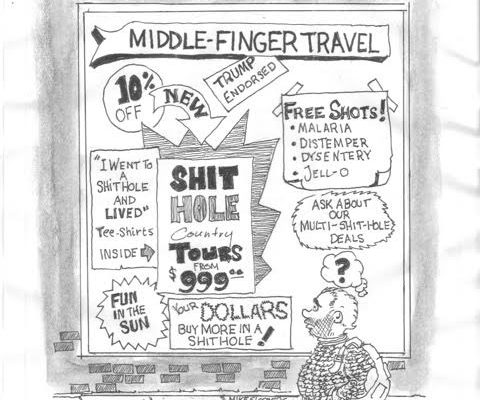 MIDDLE-FINGER TRAVEL
10%
OFF
NEW
TRUMP
ENDORSED
FREE SHOTS!
• MALARIA
• DISTEMPER
• DYSENTERY
• JELL-O
"I WENT TO
A
SHITHOLE
AND
LIVED"
Tee-Shirts
INSIDE
SHIT
HOLE
Country
TOURS
FROM
$999⁰⁰
ASK ABOUT
OUR
MULTI-SHIT-HOLE
DEALS
?
FUN
IN THE
SUN
YOUR DOLLARS
BUY MORE IN A
SHITHOLE!